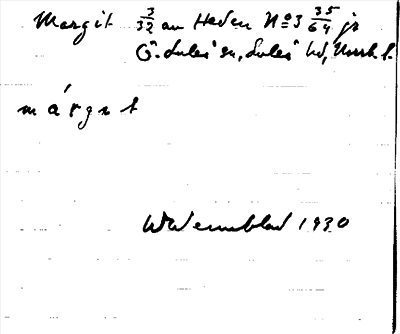 Margit 3/32 av Heden No 3 35/64 js
Ö. Luleå sn, Luleå hd, Norrb. l.
márgıt
W Wennblad 1930